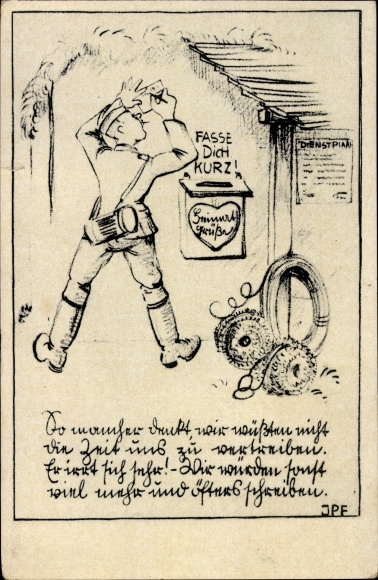 FASSE
Dich
KURZ!
DIENSTPLAN
Heimat
Grüße
So mancher denkt, wir wüßten nicht
die Zeit uns zu vertreiben.
Er irrt sich sehr! - Wir würden sonst
viel mehr und öfters schreiben.
JPF